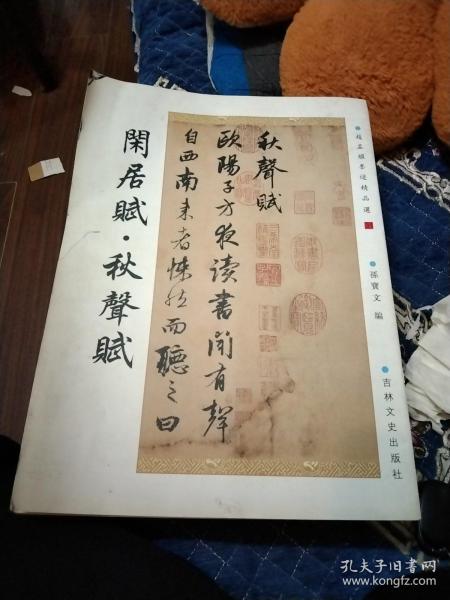 閑居賦·秋聲賦
秋聲賦
歐陽子方夜讀書聞有聲
自西南来者悚然而聽之曰
趙孟頫墨迹精品選
孫寶文 編
吉林文史出版社
孔夫子旧书网
www.kongfz.com